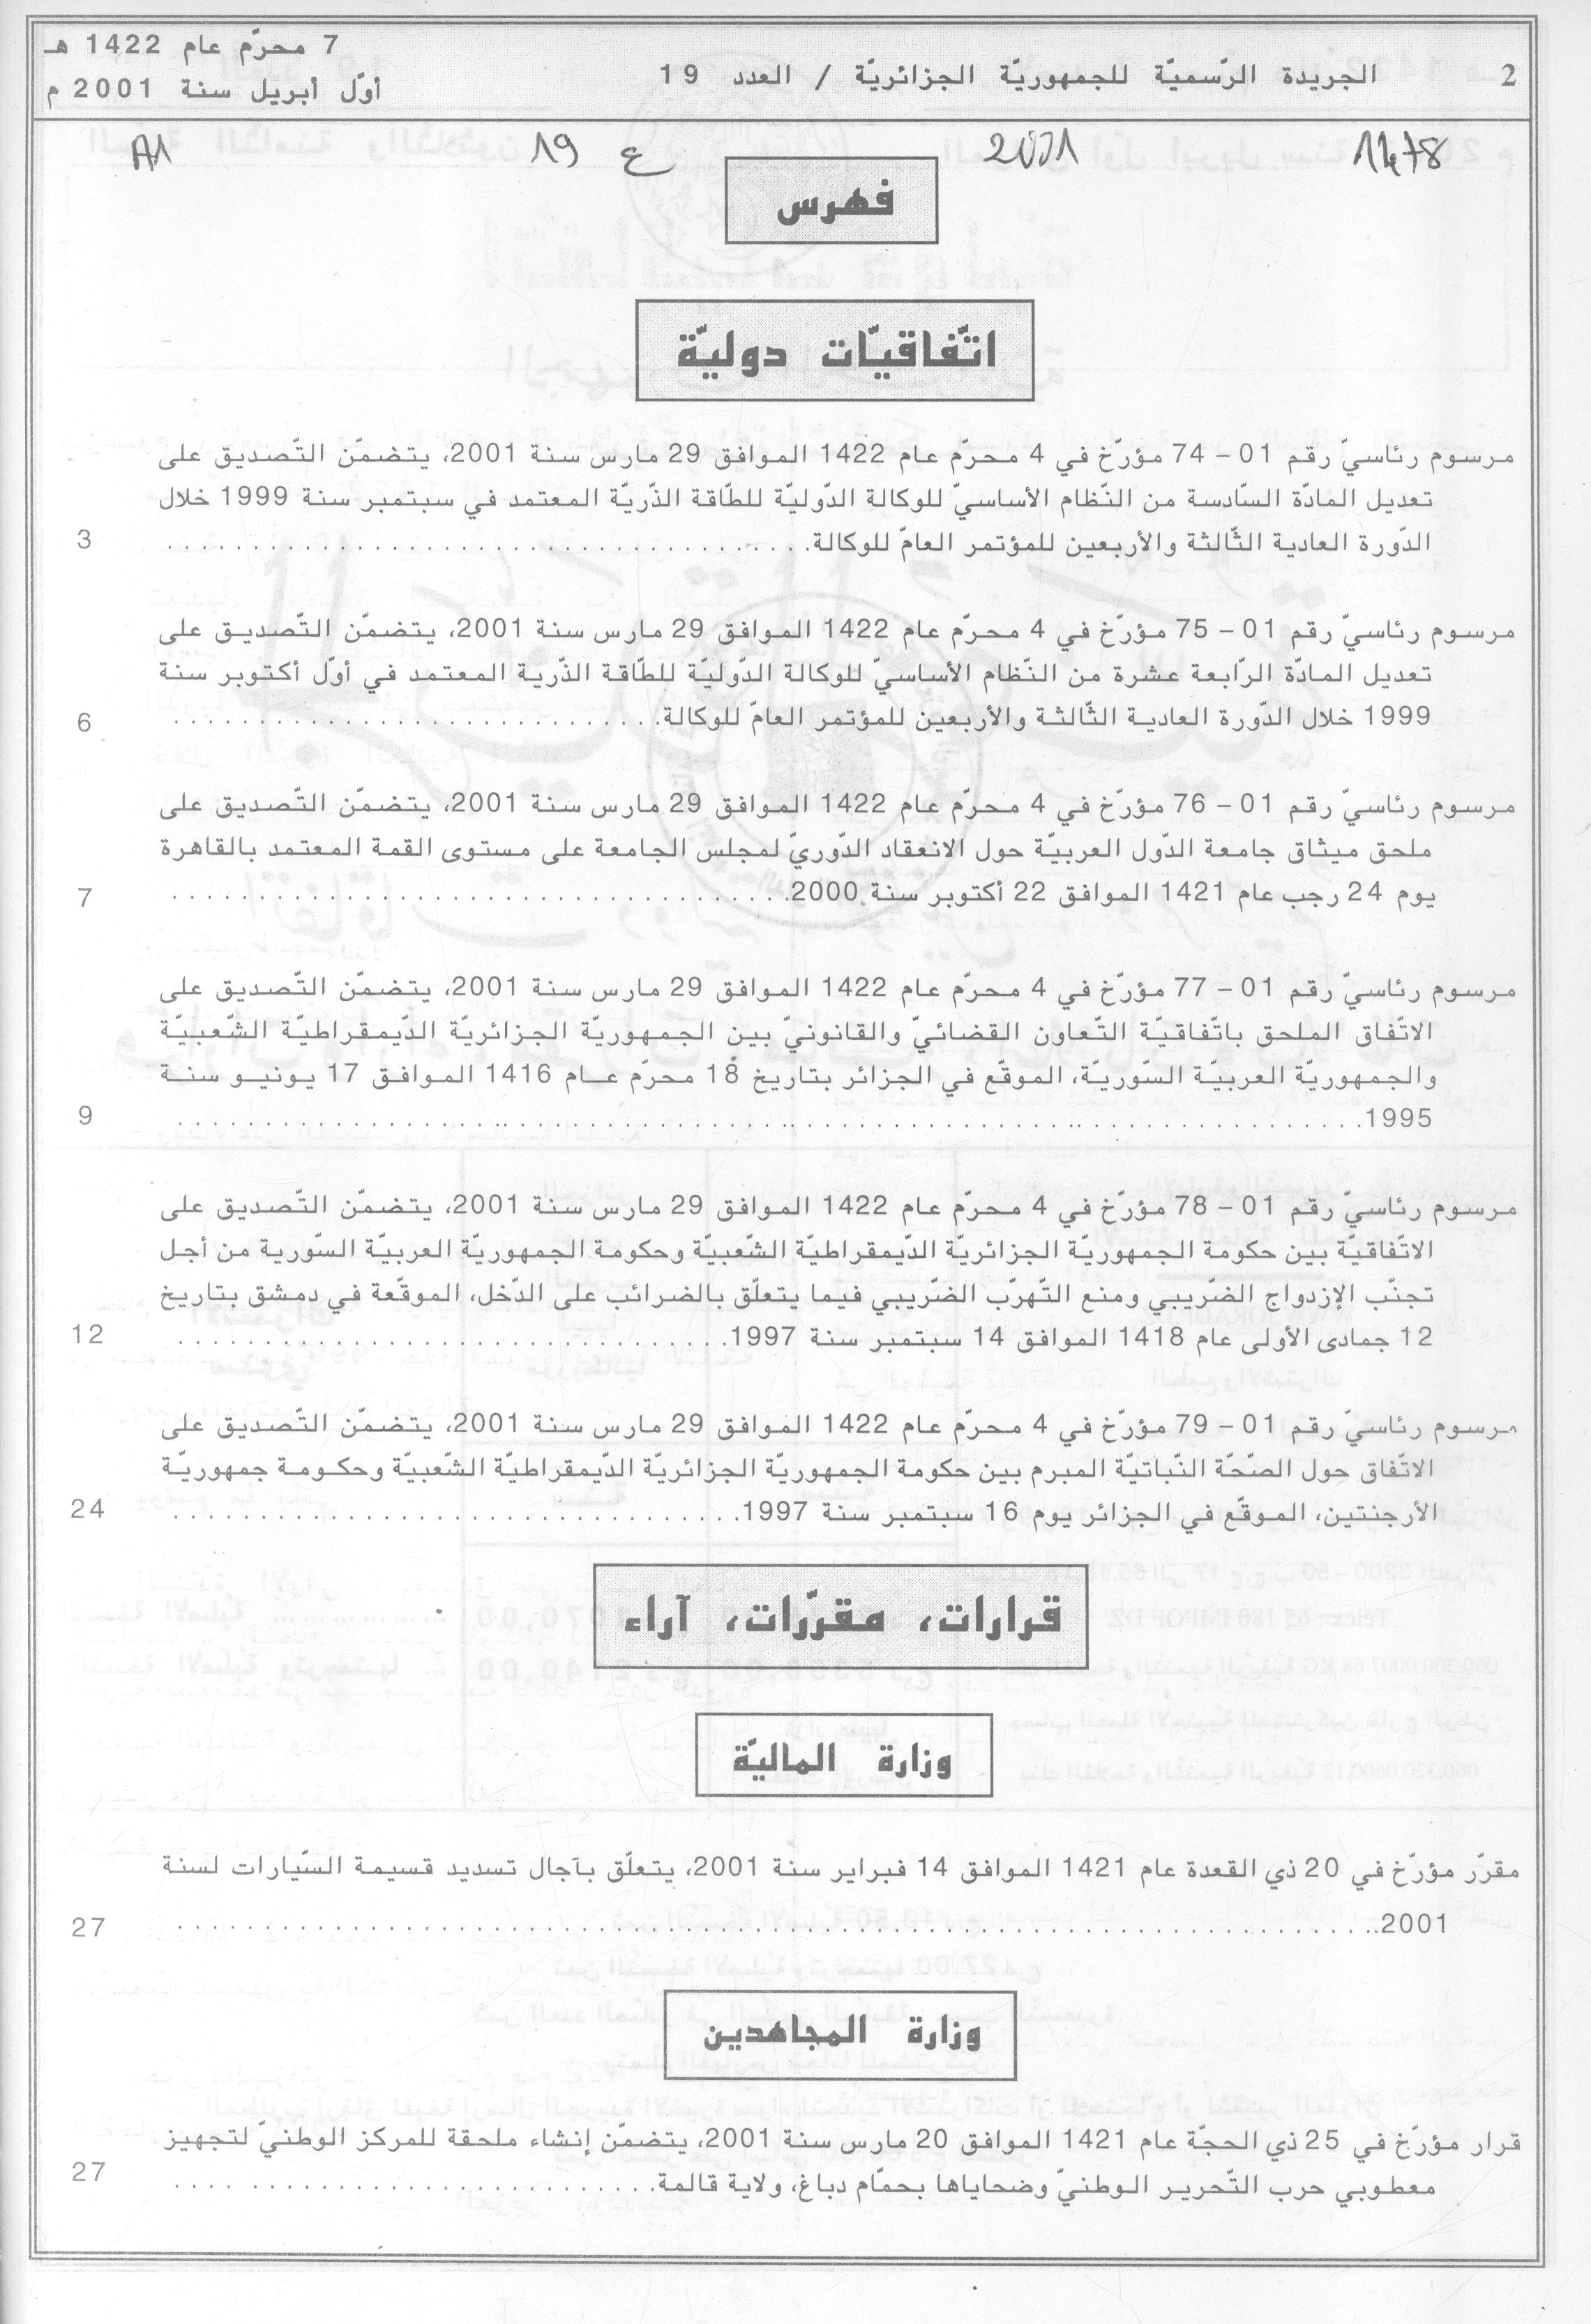 2 الجريدة الرّسميّة للجمهوريّة الجزائريّة / العدد 19
7 محرّم عام 1422 هـ
أوّل أبريل سنة 2001 م
1478 2001 ع 19 A1
فهرس
اتّفاقيّات دوليّة
مرسوم رئاسيّ رقم 01 – 74 مؤرّخ في 4 محرّم عام 1422 الموافق 29 مارس سنة 2001، يتضمّن التّصديق على
تعديل المادّة السّادسة من النّظام الأساسيّ للوكالة الدّوليّة للطّاقة الذّريّة المعتمد في سبتمبر سنة 1999 خلال
الدّورة العادية الثّالثة والأربعين للمؤتمر العامّ للوكالة. 3
مرسوم رئاسيّ رقم 01 – 75 مؤرّخ في 4 محرّم عام 1422 الموافق 29 مارس سنة 2001، يتضمّن التّصديق على
تعديل المادّة الرّابعة عشرة من النّظام الأساسيّ للوكالة الدّوليّة للطّاقة الذّرية المعتمد في أوّل أكتوبر سنة
1999 خلال الدّورة العادية الثّالثة والأربعين للمؤتمر العامّ للوكالة. 6
مرسوم رئاسيّ رقم 01 – 76 مؤرّخ في 4 محرّم عام 1422 الموافق 29 مارس سنة 2001، يتضمّن التّصديق على
ملحق ميثاق جامعة الدّول العربيّة حول الانعقاد الدّوريّ لمجلس الجامعة على مستوى القمة المعتمد بالقاهرة
يوم 24 رجب عام 1421 الموافق 22 أكتوبر سنة 2000. 7
مرسوم رئاسيّ رقم 01 – 77 مؤرّخ في 4 محرّم عام 1422 الموافق 29 مارس سنة 2001، يتضمّن التّصديق على
الاتّفاق الملحق باتّفاقيّة التّعاون القضائيّ والقانونيّ بين الجمهوريّة الجزائريّة الدّيمقراطيّة الشّعبيّة
والجمهوريّة العربيّة السّوريّة، الموقّع في الجزائر بتاريخ 18 محرّم عام 1416 الموافق 17 يونيو سنة
1995. 9
مرسوم رئاسيّ رقم 01 – 78 مؤرّخ في 4 محرّم عام 1422 الموافق 29 مارس سنة 2001، يتضمّن التّصديق على
الاتّفاقيّة بين حكومة الجمهوريّة الجزائريّة الدّيمقراطيّة الشّعبيّة وحكومة الجمهوريّة العربيّة السّورية من أجل
تجنّب الإزدواج الضّريبي ومنع التّهرّب الضّريبي فيما يتعلّق بالضرائب على الدّخل، الموقّعة في دمشق بتاريخ
12 جمادى الأولى عام 1418 الموافق 14 سبتمبر سنة 1997. 12
مرسوم رئاسيّ رقم 01 – 79 مؤرّخ في 4 محرّم عام 1422 الموافق 29 مارس سنة 2001، يتضمّن التّصديق على
الاتّفاق حول الصّحّة النّباتيّة المبرم بين حكومة الجمهوريّة الجزائريّة الدّيمقراطيّة الشّعبيّة وحكومة جمهوريّة
الأرجنتين، الموقّع في الجزائر يوم 16 سبتمبر سنة 1997. 24
قرارات، مقرّرات، آراء
وزارة الماليّة
مقرّر مؤرّخ في 20 ذي القعدة عام 1421 الموافق 14 فبراير سنة 2001، يتعلّق بآجال تسديد قسيمة السّيارات لسنة
2001. 27
وزارة المجاهدين
قرار مؤرّخ في 25 ذي الحجّة عام 1421 الموافق 20 مارس سنة 2001، يتضمّن إنشاء ملحقة للمركز الوطنيّ لتجهيز
معطوبي حرب التّحرير الوطنيّ وضحاياها بحمّام دباغ، ولاية قالمة. 27